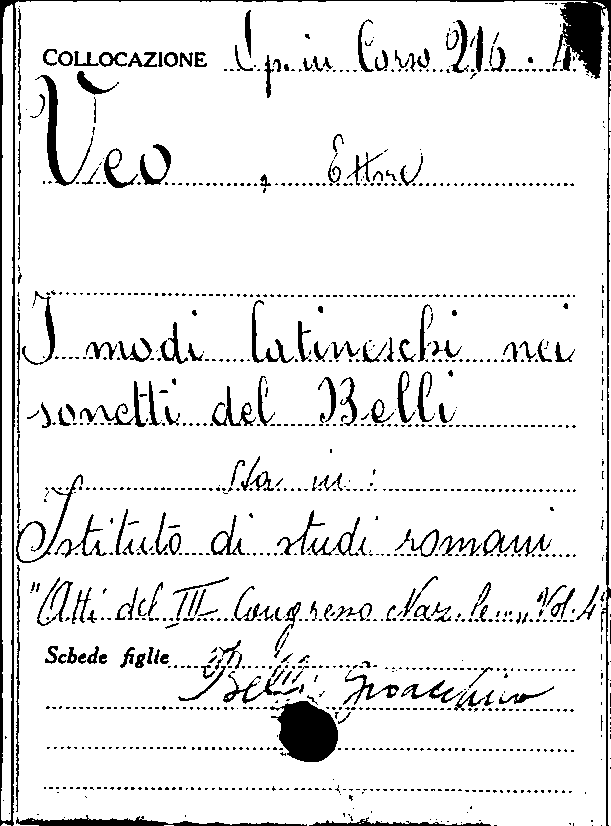 COLLOCAZIONE Sp. in Corso 216 . 4
Veo , Ettore
I modi latineschi nei
sonetti del Belli
sta in :
Istituto di studi romani
"Atti del III Congresso Naz.le...„ Vol. 4°
Schede figlie
Belli, Gioacchino